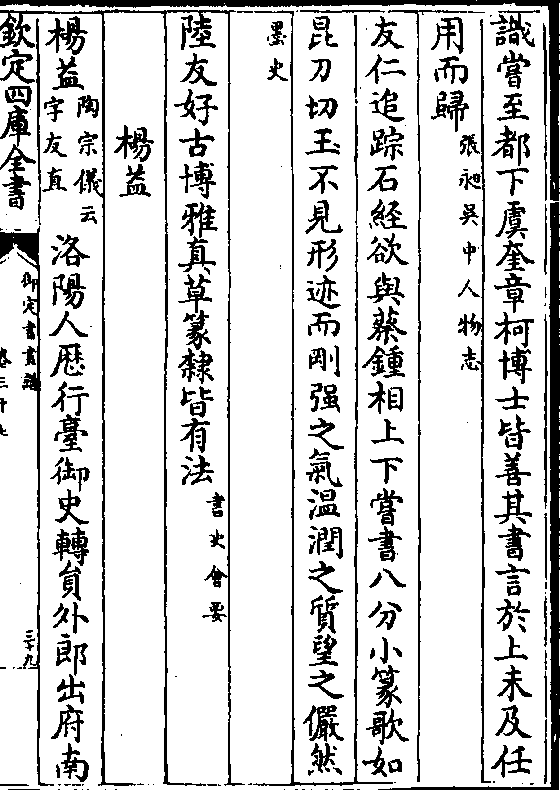 識嘗至都下虞奎章柯博士皆善其書言於上未及任
用而歸張昶吳中人物志
友仁追踪石經欲與蔡鍾相上下嘗書八分小篆歌如
昆刀切玉不見形迹而剛强之氣温潤之質望之儼然
墨史
陸友好古博雅真草篆隸皆有法書史會要
楊益
楊益陶宗儀云字友直洛陽人歷行臺御史轉貟外郎出府南
欽定四庫全書
御定書畫譜
卷三十七
三十九